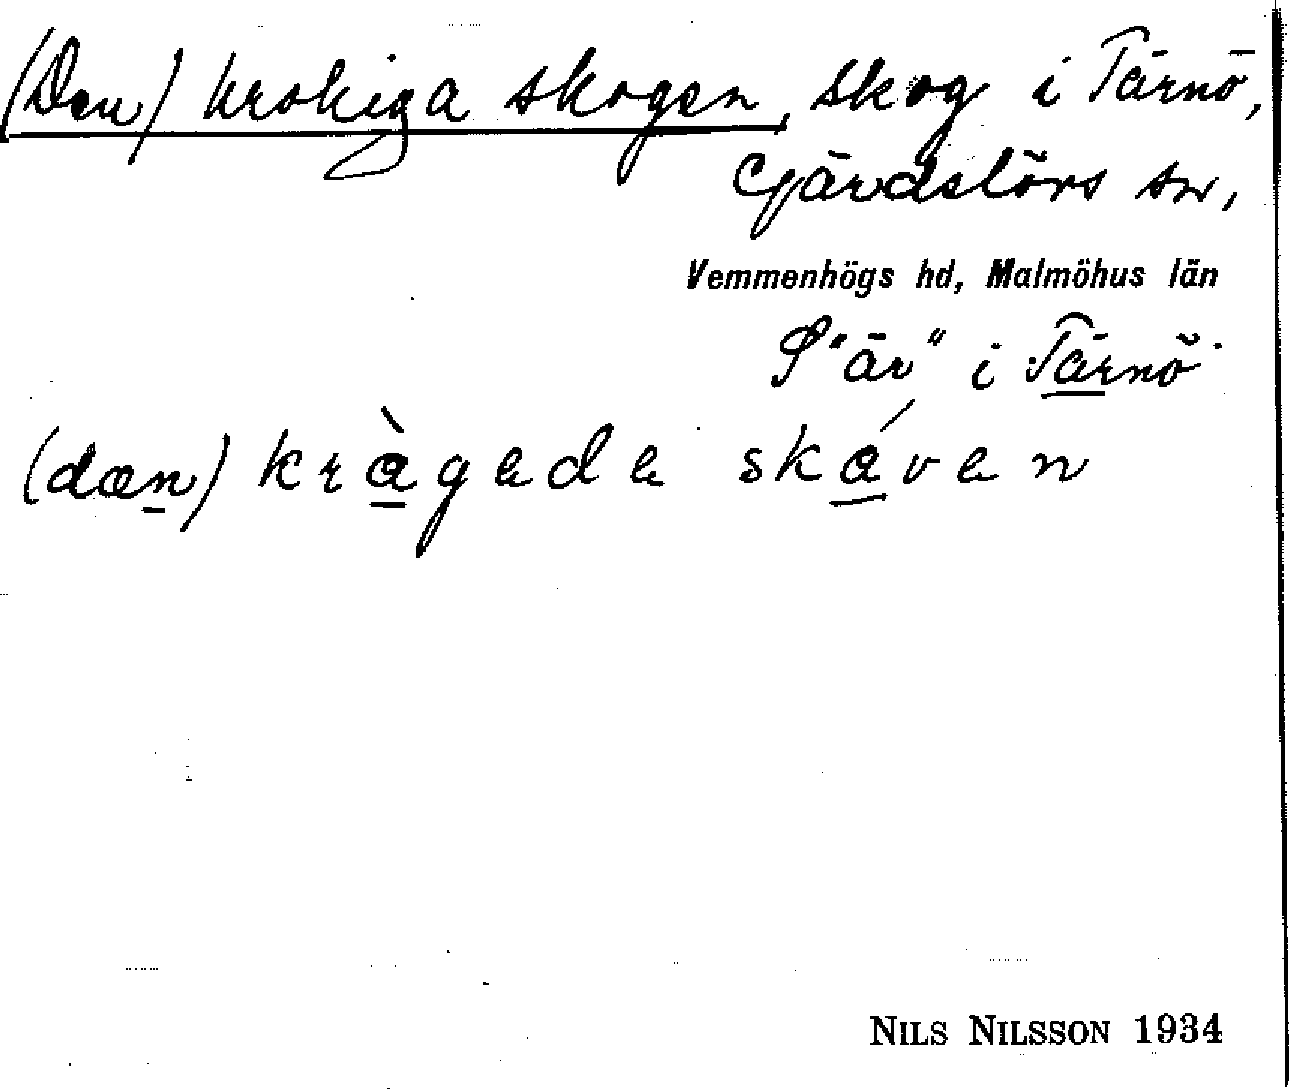 (Den) krokiga skogen, skog i Tärnö,
Gärdslövs sn,
Vemmenhögs hd, Malmöhus län
S "är" i Tärnö.
(dæn) kràgede skáven
NILS NILSSON 1934